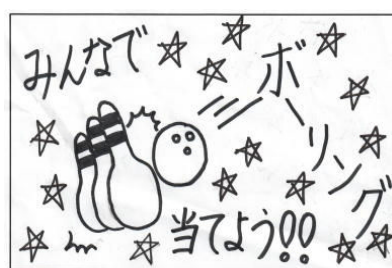 みんなで
ボーリング
当てよう!!